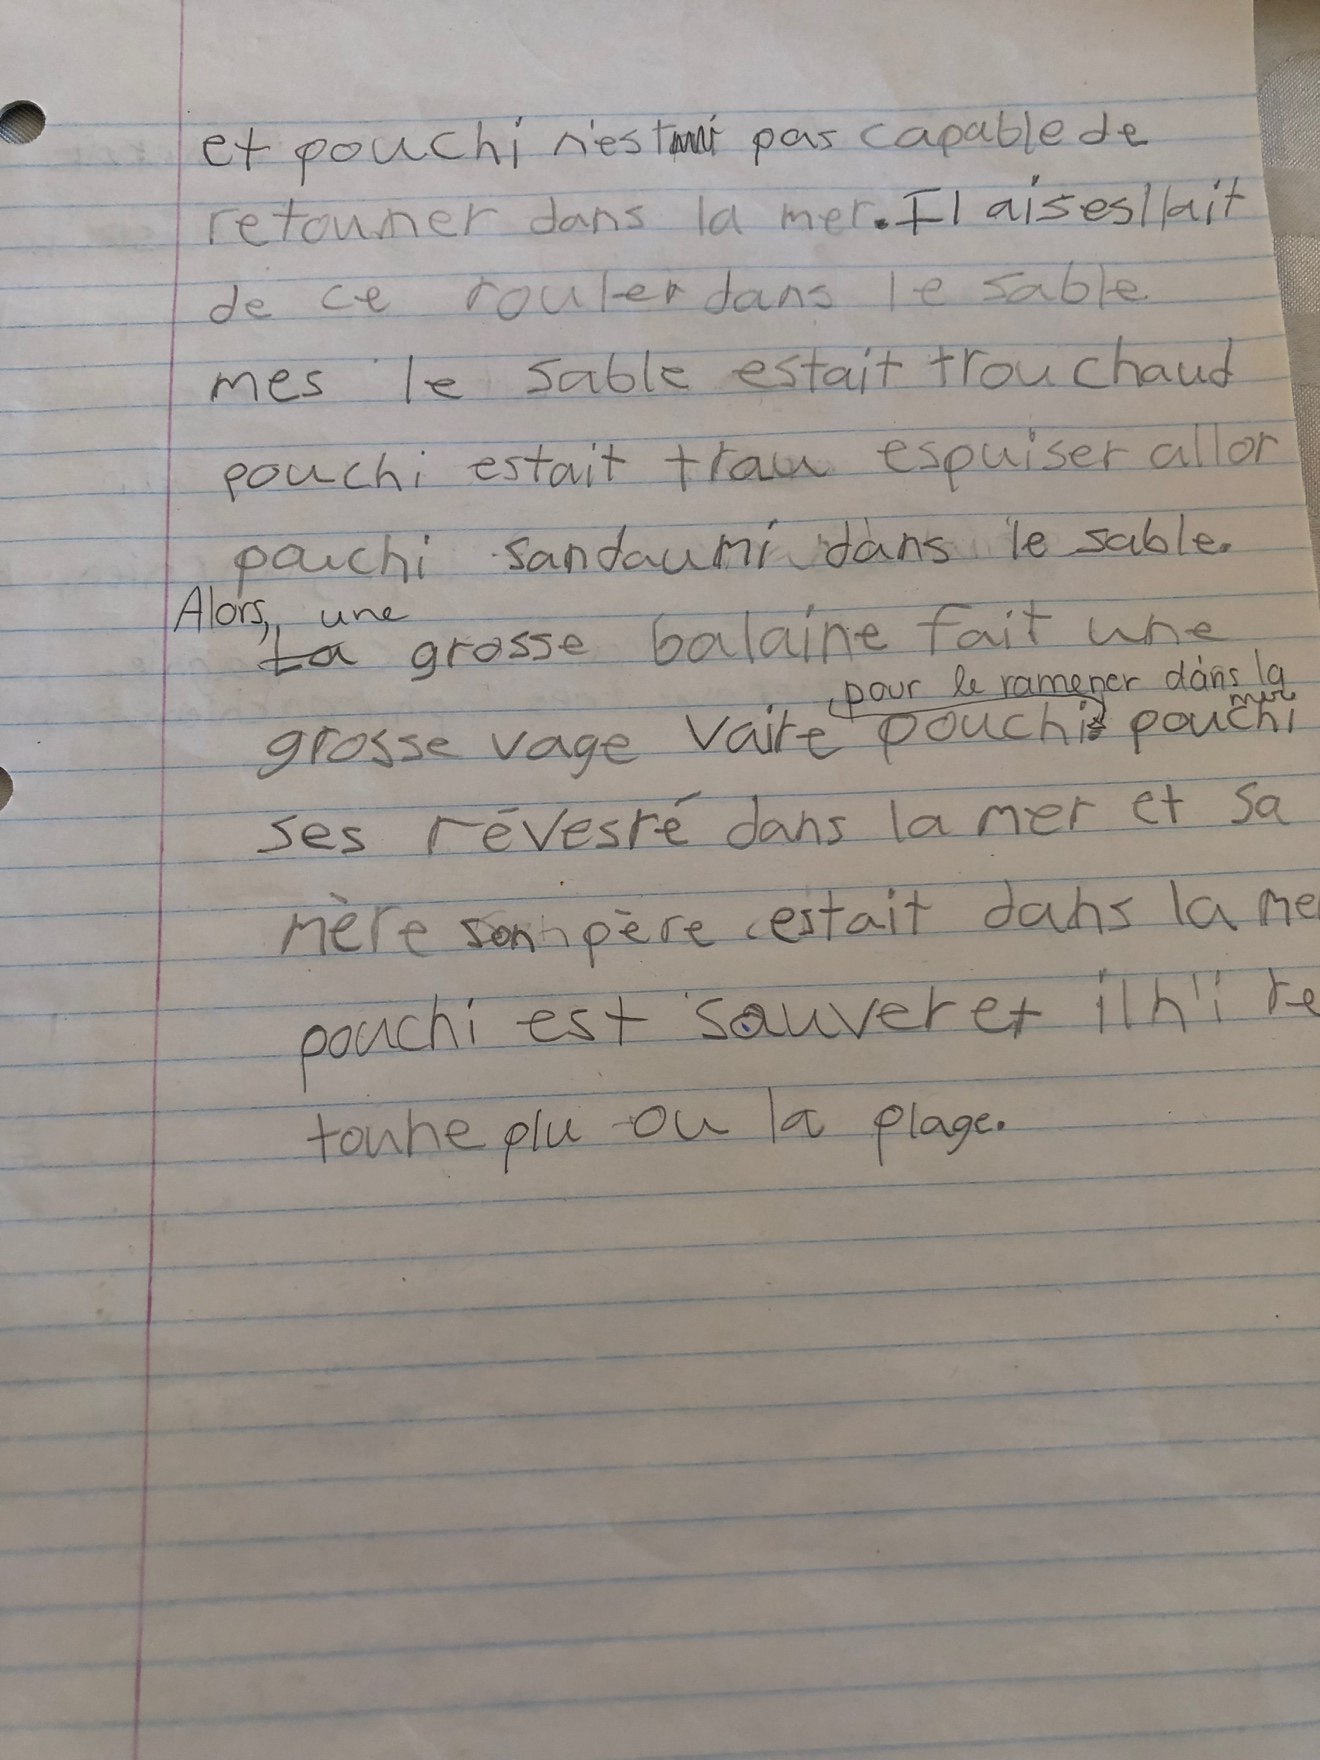 et pouchi n'est pas capable de
retourner dans la mer. Il aisesllait
de ce rouler dans le sable
mes le sable estait trou chaud
pouchi estait trau espuiser allor
pouchi sandaumi dans le sable.
Alors, une
La grosse balaine fait une
pour le ramener dans la
mer
grosse vage vaire pouchi pouchi
ses révesré dans la mer et sa
mère son père estait dans la me
pouchi est sauver et il n'i re
toune plu ou la plage.